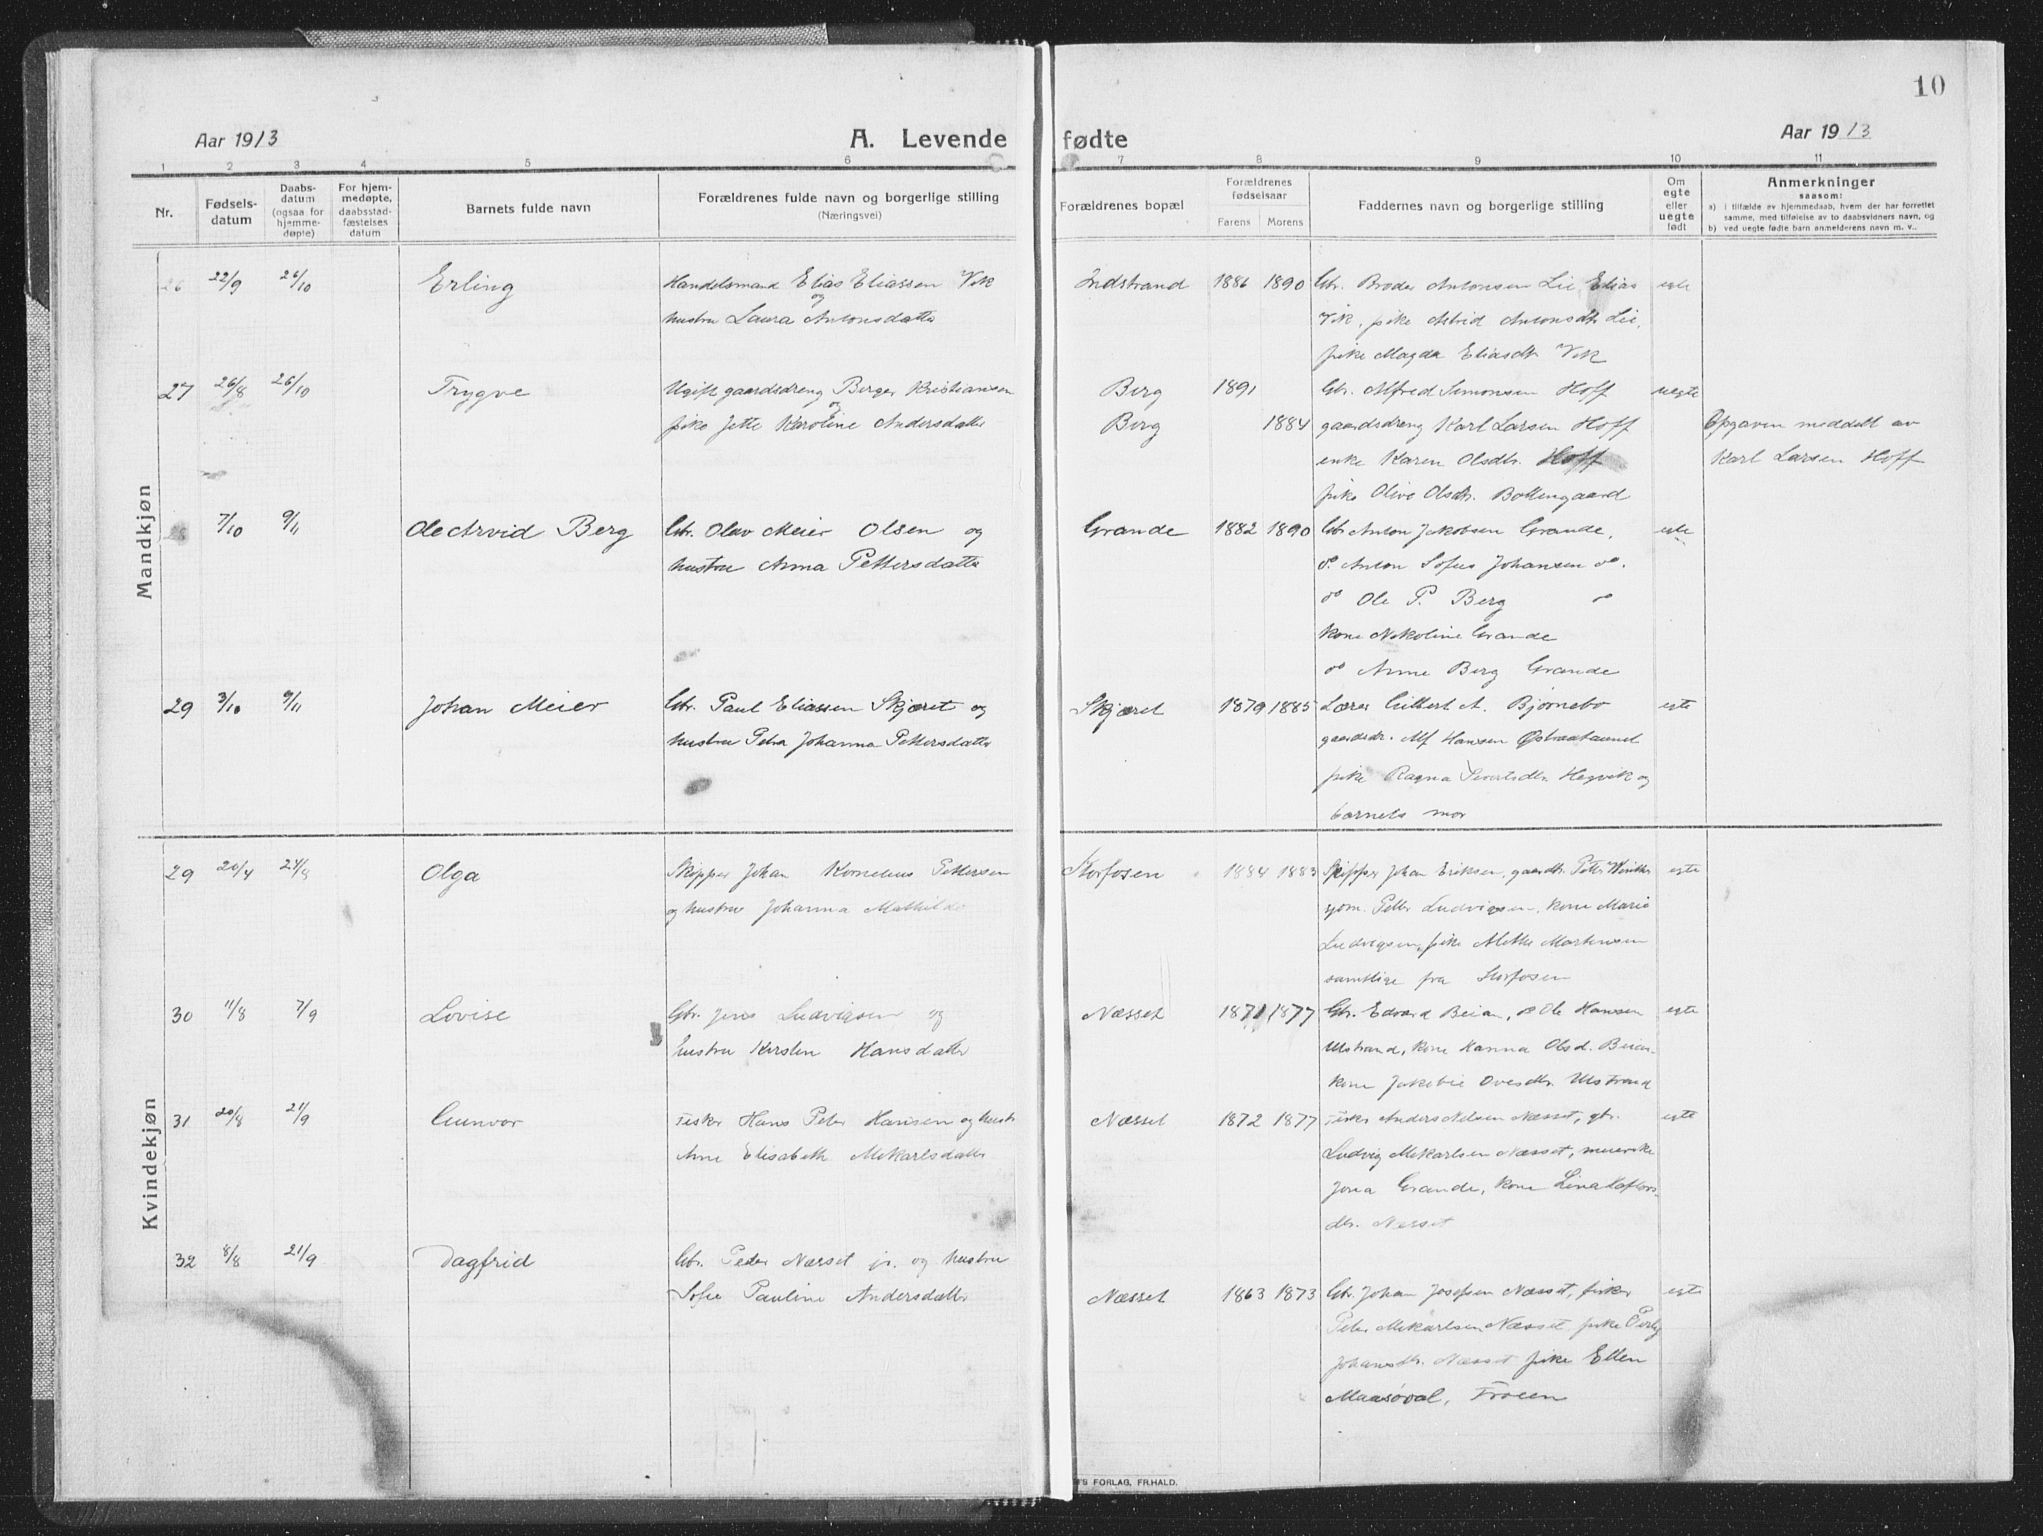 10
Aar 1913
A. Levende fødte
Aar 1913
1 2 3 4 5 6 7 8 9 10 11
Nr.
Fødsels-
datum
Daabs-
datum
(ogsaa for
hjemme-
døpte)
For hjem-
medøpte,
daabsstad-
fæstelses
datum
Barnets fulde navn
Forældrenes fulde navn og borgerlige stilling
(Næringsvei)
Forældrenes bopæl
Forældrenes
fødselsaar
Farens Morens
Faddernes navn og borgerlige stilling
Om
egte
eller
uegte
født
Anmerkninger
saasom:
a) i tilfælde av hjemmedaab, hvem der har forrettet
samme, med tilføielse av to daabsvidners navn, og
b) ved uegte fødte barn anmelderens navn m. v..
Mandkjøn
26 22/9 26/10 Erling Handelsmand Elias Eliassen Vik
og
hustru Laura Antonsdatter
Indstrand 1886 1890 Gbr. Broder Antonsen Lie Elias egte
Vik, pike Astrid Antonsdtr Lie,
pike Magda Eliasdtr Vik
27 26/8 26/10 Trygve Ugift gaardsdreng Birger Kristiansen
og
pike Jette Karoline Andersdatter
Berg 1891 Gbr. Alfred Simonsen Hoff uegte
Berg 1884 gaardsdreng Karl Larsen Hoff Opgaven meddelt av
enke Karen Olsdtr. Hoff Karl Larsen Hoff
pike Olive Olsdtr. Bottengaard
28 7/10 9/11 Ole Arvid Berg Gbr. Olav Meier Olsen og
hustru Anna Pettersdatter
Grande 1882 1890 Gbr Anton Jakobsen Grande, egte
Anton Sofus Johansen do.
do Ole P. Berg do
kone Nikoline Grande
do Anne Berg Grande
29 3/10 9/11 Johan Meier Gbr. Paul Eliassen Skjæret og
hustru Petra Johanna Pettersdatter
Skjæret 1879 1885 Lærer Gilbert A. Bjørnebo egte
gaardsdr. Alf Hansen Østraataunet
pike Ragna Sivertsdtr. Hegvik og
barnets mor
Kvindekjøn
29 20/4 24/8 Olga Skipper Johan Kornelius Pettersen
og hustru Johanna Mathilde
Storfosen 1884 1883 Skipper Johan Eriksen, gaardbr. Petter egte
sjøm. Petter Ludvigsen, kone Marie
Ludvigsen, pike Alette Martinsen
samtlige fra Storfosen
30 11/8 7/9 Lovise Gbr. Jens Ludvigsen og
hustru Kirsten Hansdatter
Næsset 1871 1877 Gbr. Edvard Beian, do Ole Hansen egte
Ulstrand, kone Hanna Olsd. Beian
kone Jakobie Ovesdtr. Ulstrand
31 20/8 21/9 Gunvor Fisker Hans Peter Hansen og hustr
Ane Elisabeth Mikalsdatter
Næsset 1872 1877 Fisker Anders Nilsen Næsset, gbr. egte
Ludvig Mikalsen Næsset, meierske
Jona Grande, kone Lina
dtr. Næsset
32 8/8 21/9 Dagfrid Gbr. Peder Næsset jr. og hustru
Sofie Pauline Andersdatter
Næsset 1863 1873 Gbr. Johan Josefsen Næsset, fisker egte
Peter Mikalsen Næsset, pike
Johansdtr. Næsset pike Ellen
Maasøval, Frøien
'S FORLAG, FR.HALD.